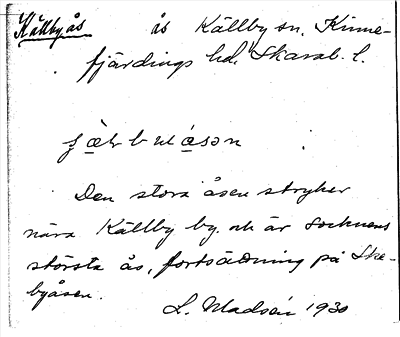 Källbyås ås Källby sn. Kinne-
fjärdings hd. Skarab. l.
Den stora åsen stryker
nära Källby by och är socknens
största ås, fortsättning på Ske-
byåsen.
L. Madsén 1930